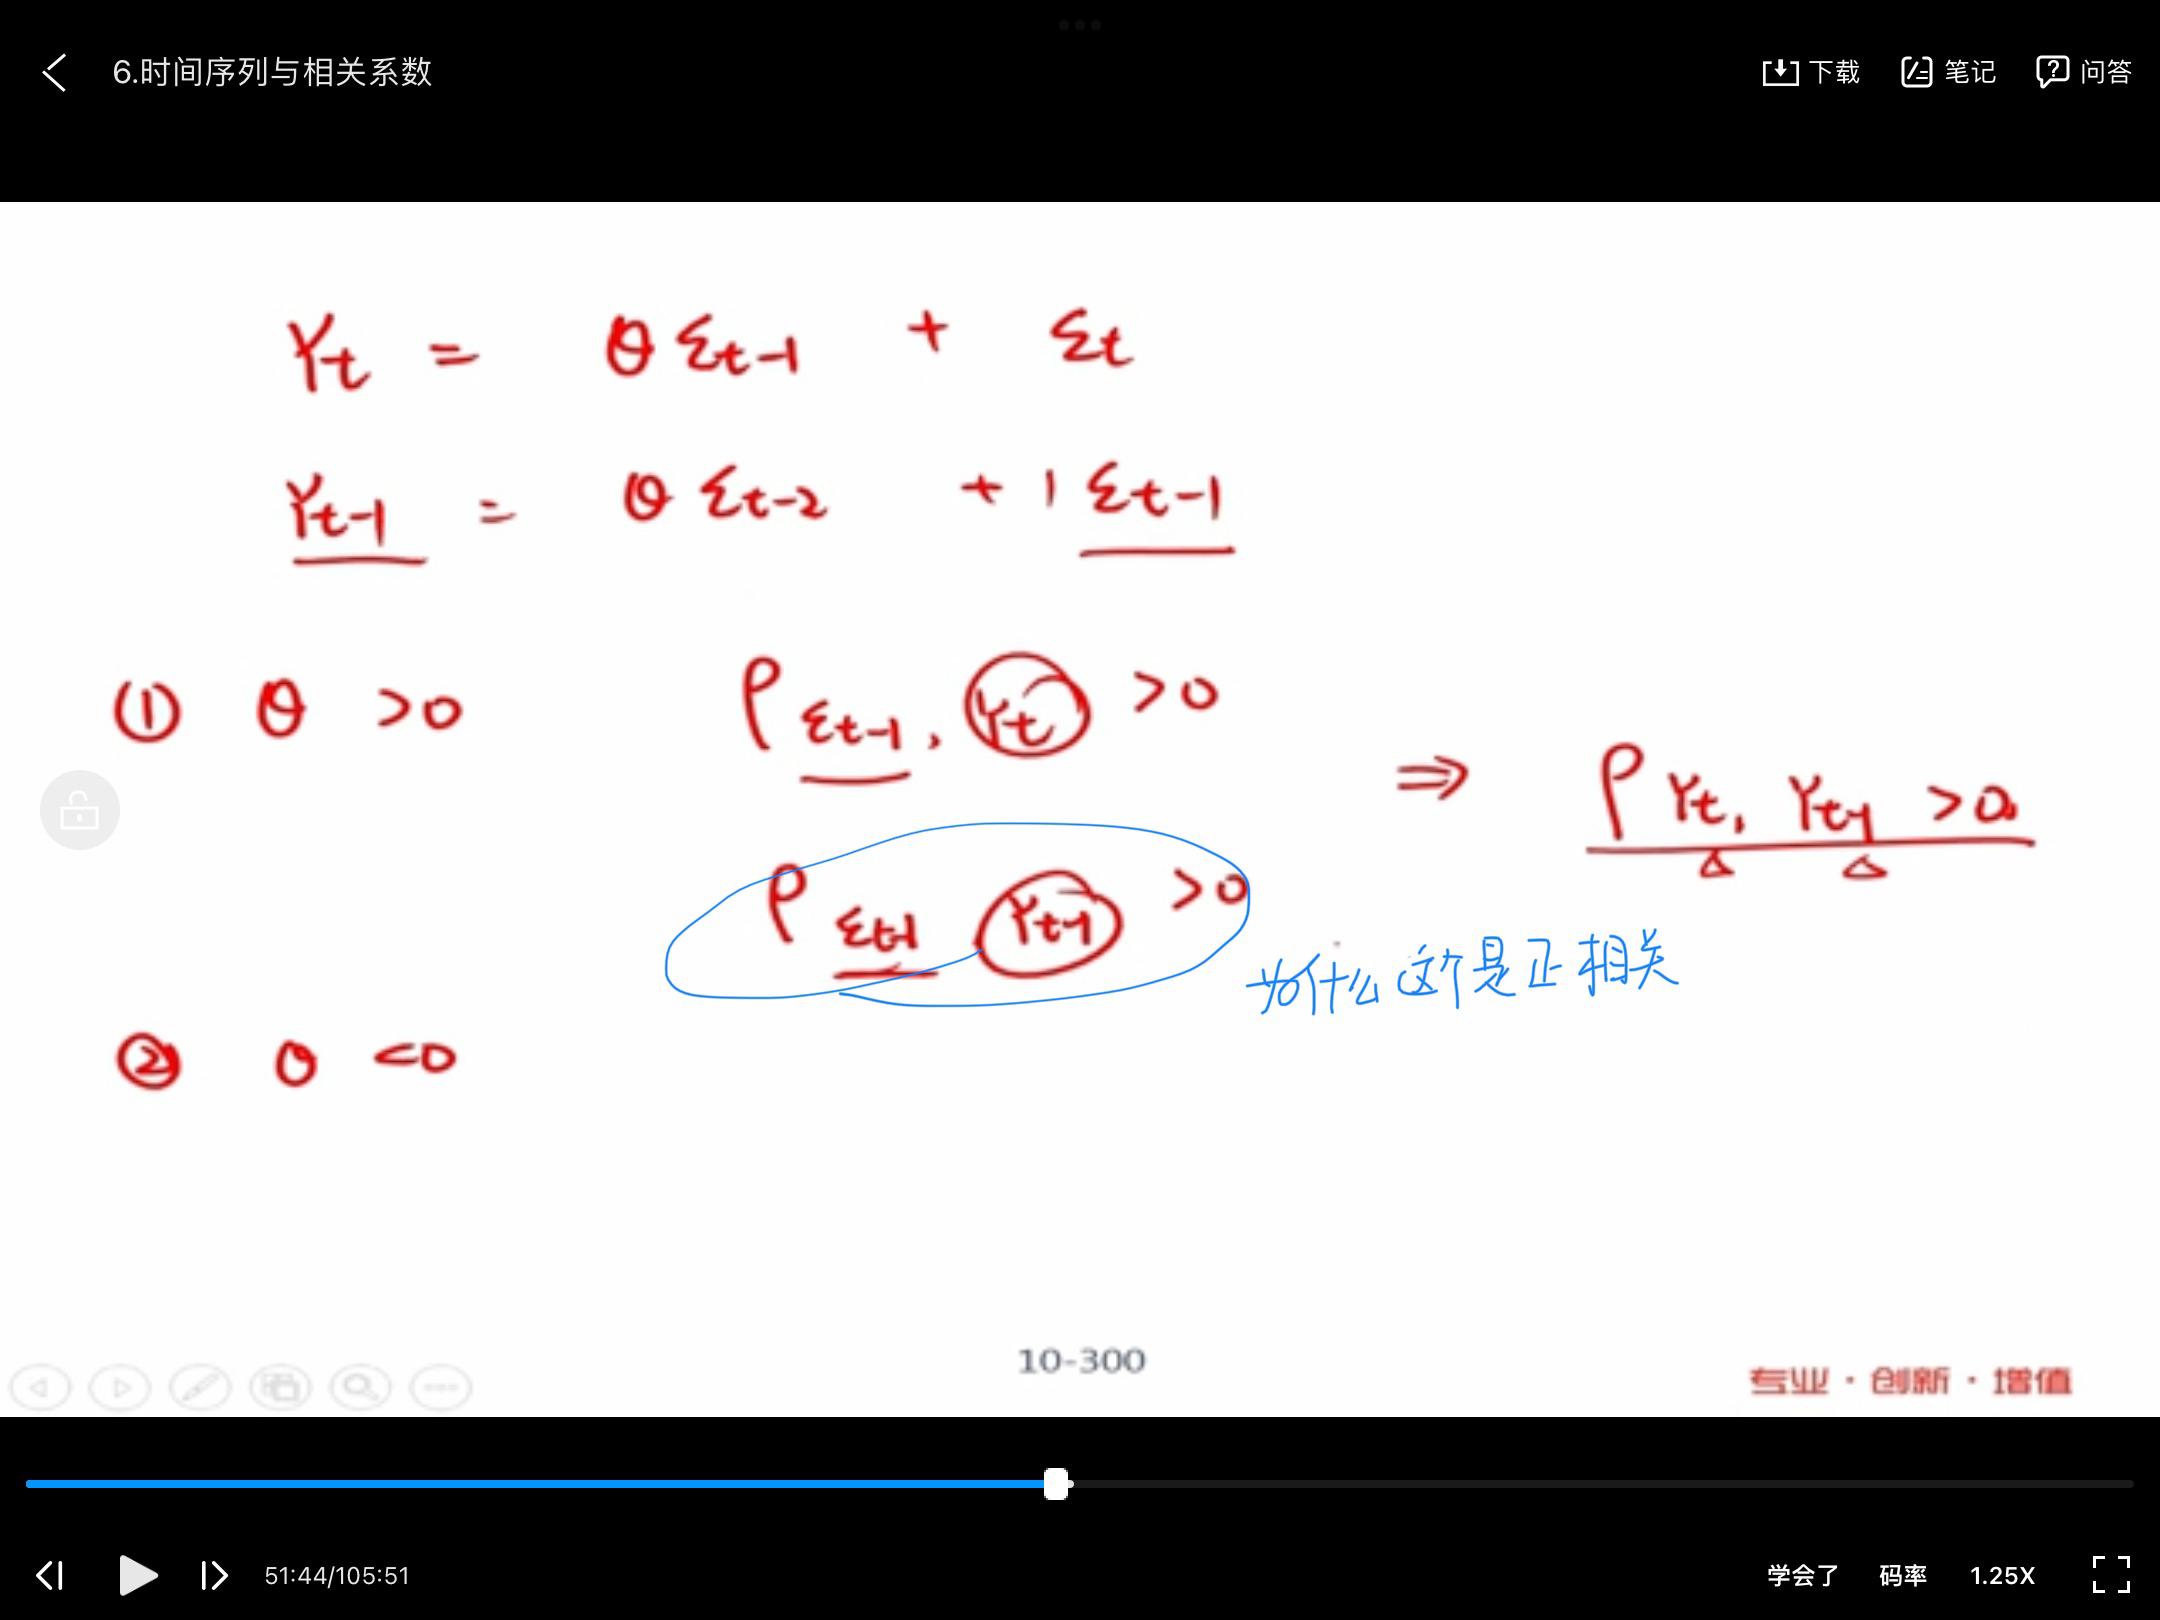 6.时间序列与相关系数
下载 笔记 问答
Yt = θ εt-1 + εt
Yt-1 = θ εt-2 + 1 εt-1
① θ >0 ρ εt-1, Yt >0
⇒ ρ Yt, Yt-1 >0
ρ εt-1 Yt-1 >0
为什么这个是正相关
② θ <0
10-300
专业·创新·增值
51:44/105:51 学会了 码率 1.25X